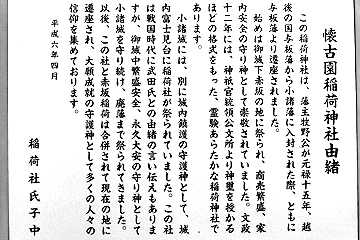 懐古園稲荷神社由緒
この稲荷神社は、藩主牧野公が元禄十五年、越
後の国与板藩から小諸藩に入封された際、ともに
与板藩より遷座されました。
始めは御城下赤坂の地に祭られ、商売繁盛、家
内安全の守り神として崇敬されていました。文政
十二年には、神祇官統領公文所より神璽を授かる
ほどの格式をもった、霊験あらたかな稲荷神社で
あります。
小諸城には、別に城内鎮護の守護神として、城
内富士見台に稲荷社が祭られていました。この社
は戦国時代に武田氏との由緒の言い伝えもありま
すが、御城中繁盛安全、永久大安の守り神として
小諸城を守り続け、廃藩まで祭られてきました。
以後、この社と赤坂稲荷は合併されて現在の地に
遷座され、大願成就の守護神として多くの人々の
信仰を集めております。
平成六年四月
稲荷社氏子中